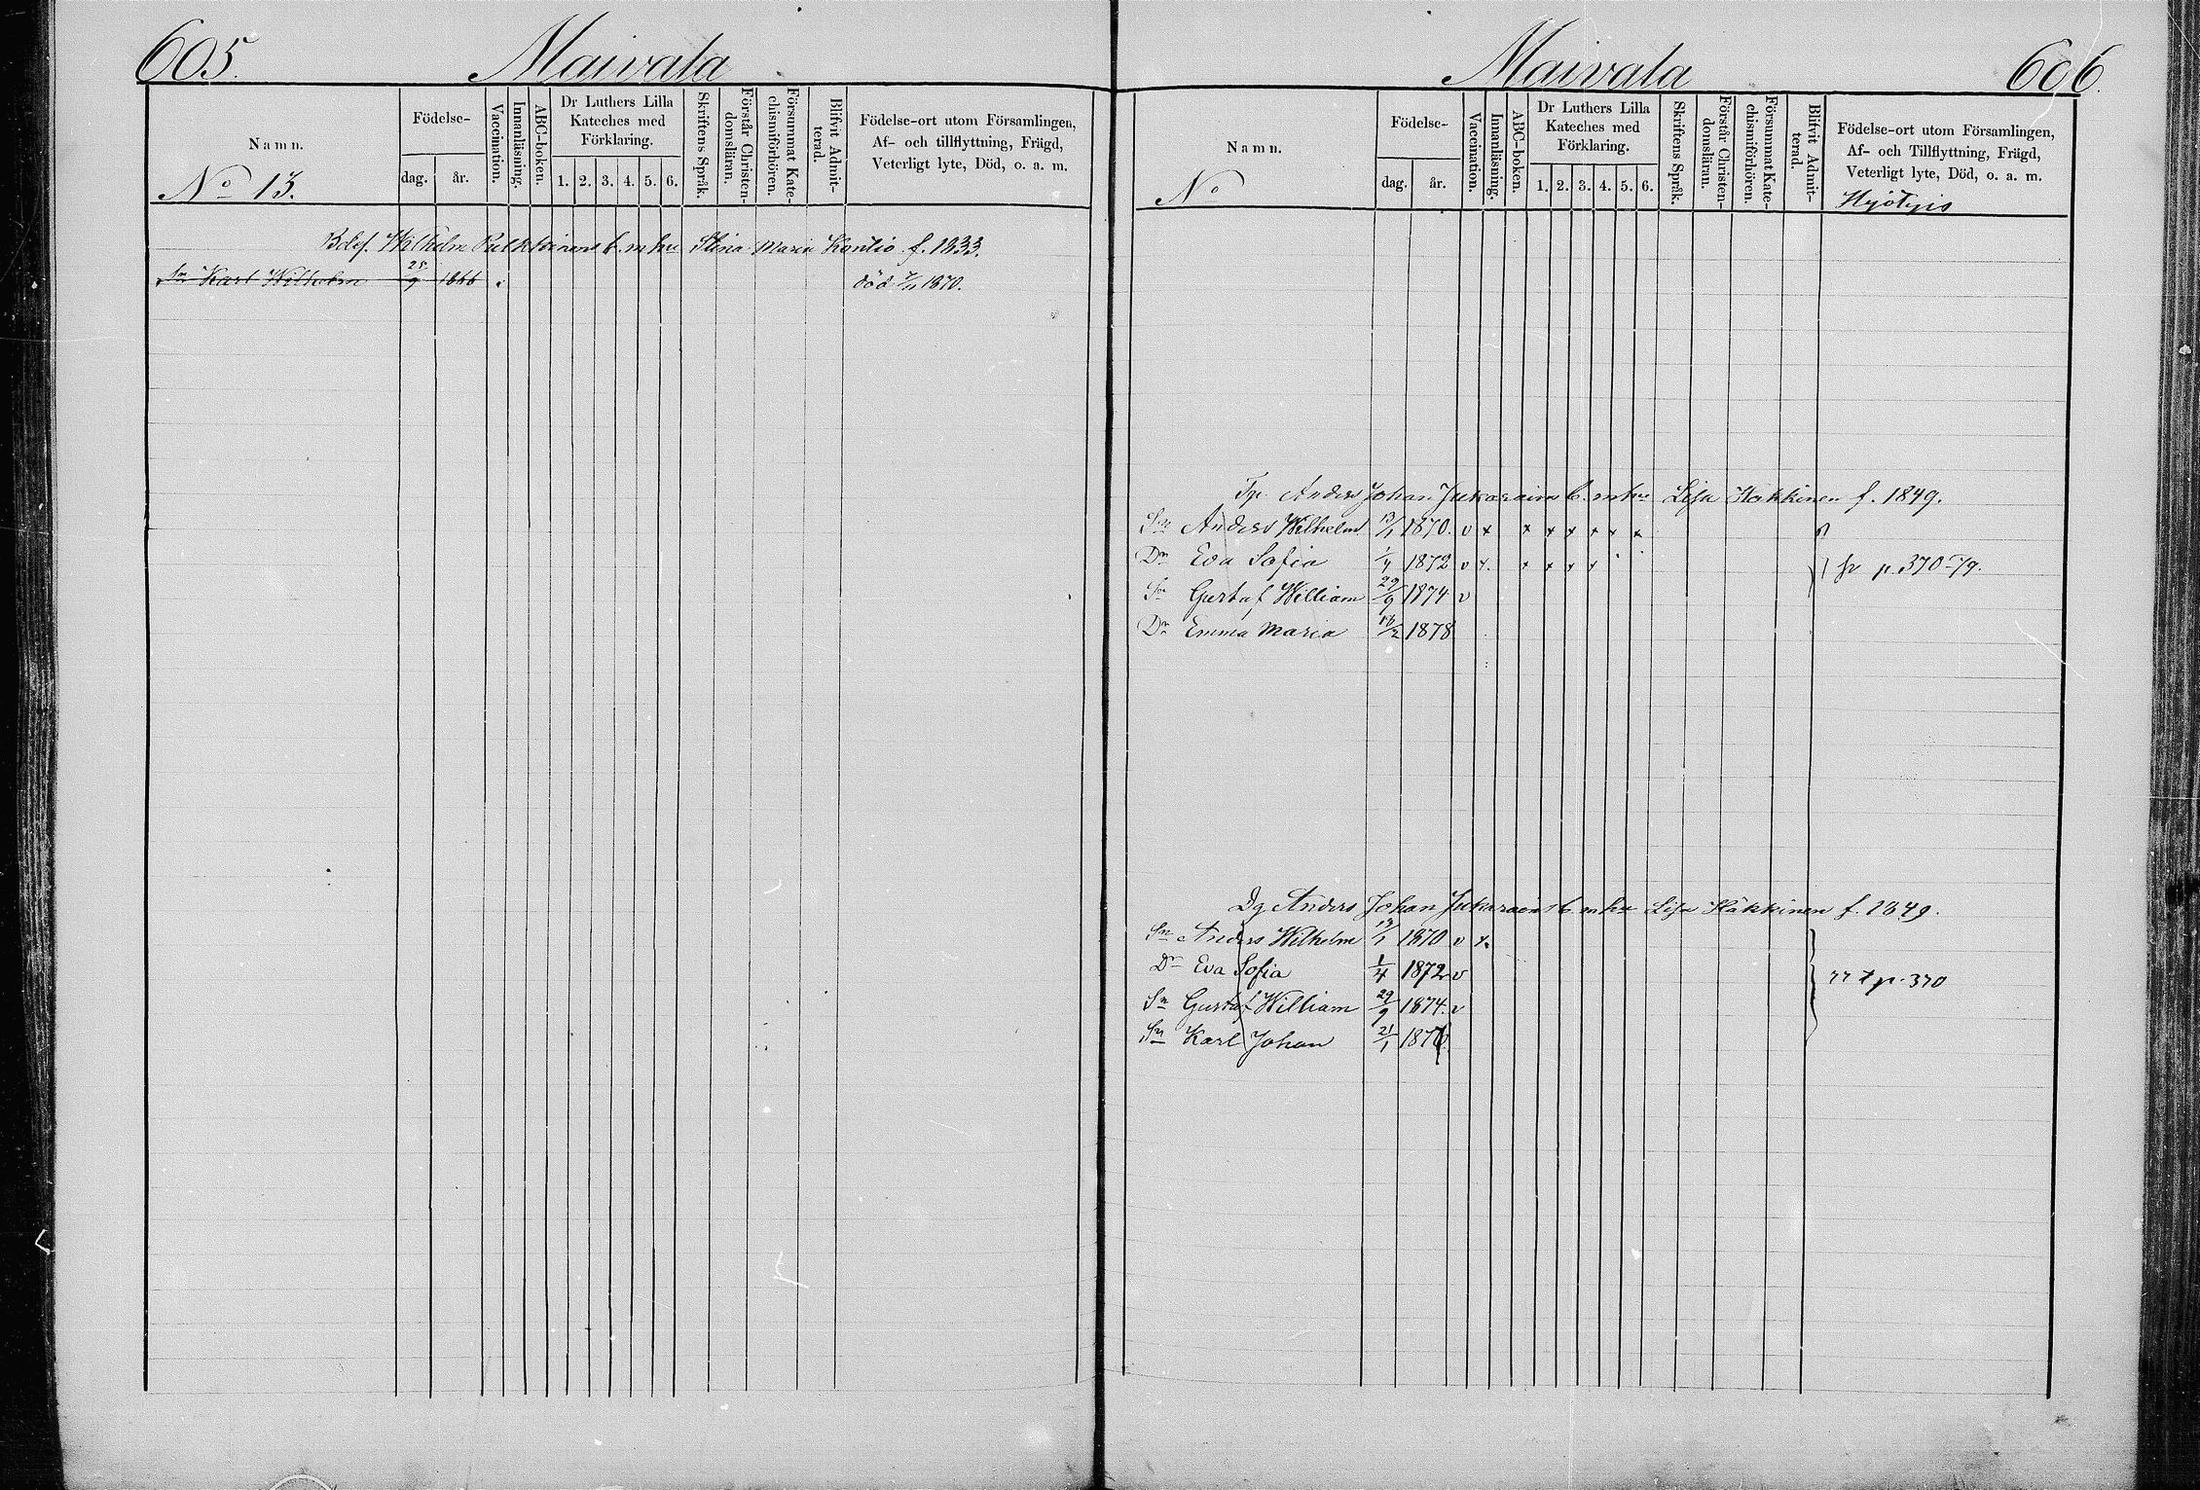 605. Maivala
Namn.
No 13.
Födelse-
dag. år.
Vaccination.
Innanläsning.
ABC-boken.
Dr Luthers Lilla
Kateches med
Förklaring.
1. 2. 3. 4. 5. 6.
Skriftens Språk.
Förstår Christen-
domsläran.
Försummat Kate-
chismiförhören.
Blifvit Admit-
terad.
Födelse-ort utom Församlingen,
Af- och tillflyttning, Frägd,
Veterligt lyte, Död, o. a. m.
Wilhelm b. m hu Stina Maria Kontio f. 1833.
Sn Karl Wilhelm 25/9 1866 död 7/11 1870.
Maivala 606.
Namn.
No
Födelse-
dag. år.
Vaccination.
Innanläsning.
ABC-boken.
Dr Luthers Lilla
Kateches med
Förklaring.
1. 2. 3. 4. 5. 6.
Skriftens Språk.
Förstår Christen-
domsläran.
Försummat Kate-
chismiförhören.
Blifvit Admit-
terad.
Födelse-ort utom Församlingen,
Af- och Tillflyttning, Frägd,
Veterligt lyte, Död, o. a. m.
Hyötyis
Anders Johan Jukarainens b. m hu Lisa Häkkinen f. 1849.
Sn Anders Wilhelm 13/1 1870. v x x x x x x x
Dr Eva Sofia 1/4 1872 v x. x x x x p. 370-79.
Sn Gustaf William 29/9 1874 v
Dr Emma Maria 18/2 1878
Dg Anders Johan Jukarainens b. m hu Lisa Häkkinen f. 1849.
Sn Anders Wilhelm 13/1 1870 v x
Dr Eva Sofia 1/4 1872 v p. 370
Sn Gustaf William 29/9 1874. v
Sn Karl Johan 21/1 1876